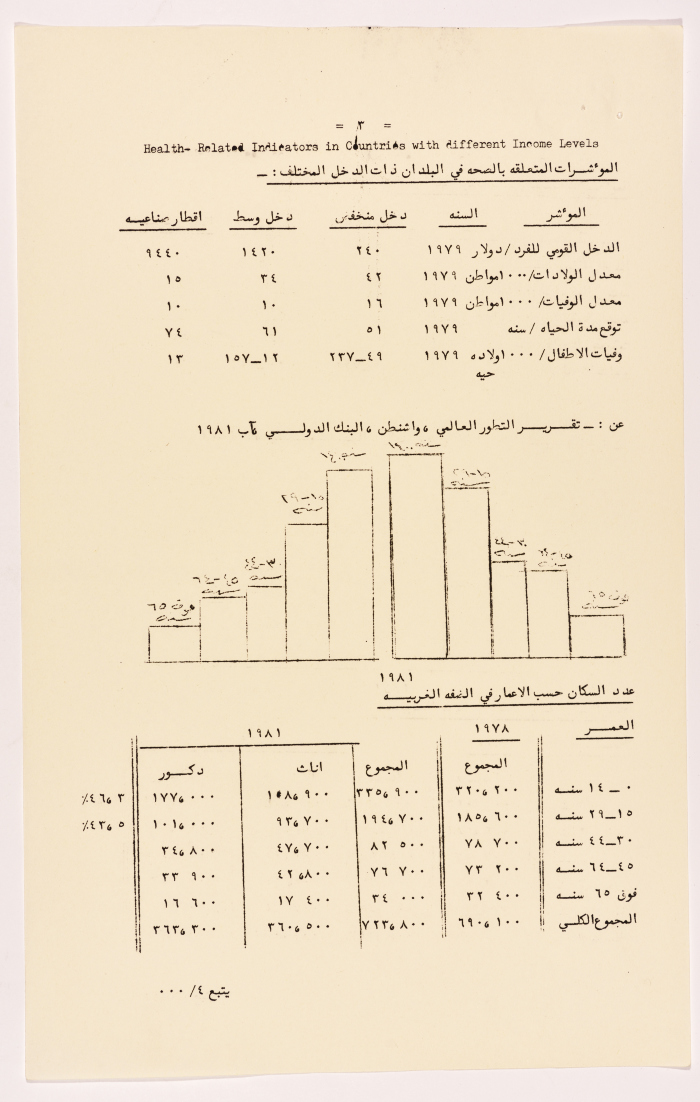 = ٣ =
Health- Related Indicators in Countries with different Income Levels
الموءشـرات المتعلقه بالصحه في البلدان ذات الدخل المختلف : ـ
الموءشر السنه دخل منخفض دخل وسط اقطار صناعيـه
الدخل القومي للفرد/دولار ١٩٧٩ ٢٤٠ ١٤٢٠ ٩٤٤٠
معدل الولادات/١٠٠٠مواطن ١٩٧٩ ٤٢ ٣٤ ١٥
معدل الوفيات/١٠٠٠مواطن ١٩٧٩ ١٦ ١٠ ١٠
توقع مدة الحياه / سنه ١٩٧٩ ٥١ ٦١ ٧٤
وفيات الاطفال/١٠٠٠ولاده ١٩٧٩ ٤٩ـ٢٣٧ ١٢ـ١٥٧ ١٣
حيه
عن : ـ تقـريـر التطور العالمي ، واشنطن ، البنك الدولـي آب ١٩٨١
١٥-٢٩
سنه
٣٠-٤٤
سنه
٤٥-٦٤
سنه
فوق ٦٥
سنه
١٩٨١
عدد السكان حسب الاعمار في الضفه الغربيـه
العمـر ١٩٧٨ ١٩٨١
المجموع المجموع اناث دكـور
٠ ـ ١٤ سنـه ٣٢٠،٢٠٠ ٣٣٥،٩٠٠ ١٥٨،٩٠٠ ١٧٧،٠٠٠ ٤٦،٣٪
١٥ـ٢٩ سنه ١٨٥،٦٠٠ ١٩٤،٧٠٠ ٩٣،٧٠٠ ١٠١،٠٠٠ ٤٣،٥٪
٣٠ـ٤٤ سنه ٧٨ ٧٠٠ ٨٢ ٥٠٠ ٤٧،٧٠٠ ٣٤،٨٠٠
٤٥ـ٦٤ سنه ٧٣ ٢٠٠ ٧٦ ٧٠٠ ٤٢،٨٠٠ ٣٣ ٩٠٠
فوق ٦٥ سنه ٣٢ ٤٠٠ ٣٤ ٠٠٠ ١٧ ٤٠٠ ١٦ ٦٠٠
المجموع الكلـي ٦٩٠،١٠٠ ٧٢٣،٨٠٠ ٣٦٠،٥٠٠ ٣٦٣،٣٠٠
يتبع ٤/ ٠٠٠